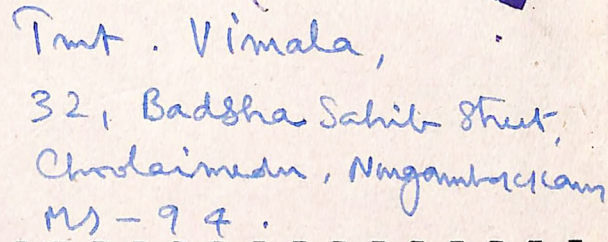 Tmt. Vimala,
32, Badsha Sahib Street,
Choolaimedu, Nungambakkam
MS-94.